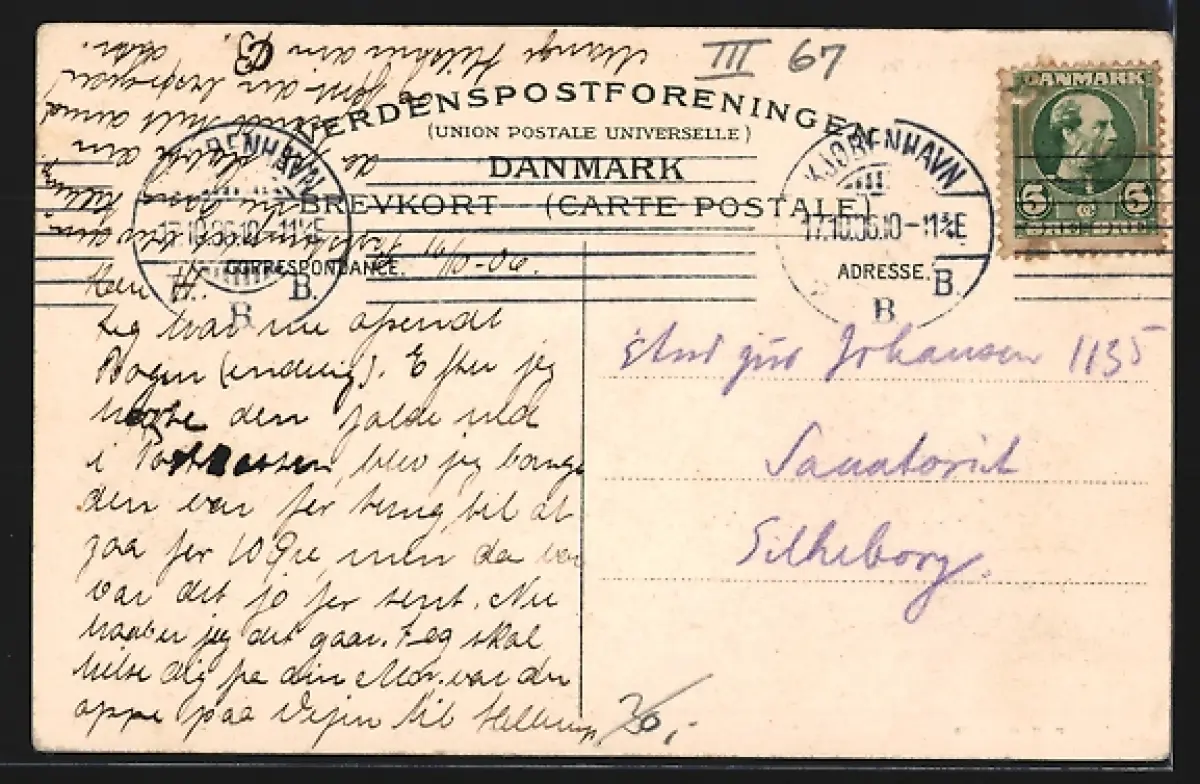 III 67
VERDENSPOSTFORENINGEN
(UNION POSTALE UNIVERSELLE)
DANMARK
BREVKORT (CARTE POSTALE)
CORRESPONDANCE.
ADRESSE.
DANMARK
5 5
KJØBENHAVN
17.10.06.10-11¾E
B. B
KJØBENHAVN
17.10.06.10-11¾E
B. B
16/10-06.
Kære H.
Jeg har nu afsendt
Bogen (endelig). Efter jeg
havde den falde ned
i Postkassen, blev jeg bange
den var for tung til at
gaa for 10 Øre, men da
var det jo for sent. Nu
haaber jeg det gaar. Jeg skal
hilse dig fra din Mor. var du
oppe paa Vejen til Hellerup,
da
Mange Hilsner din
Stud jur Johansen 1135
Sanatoriet
Silkeborg.
20,-